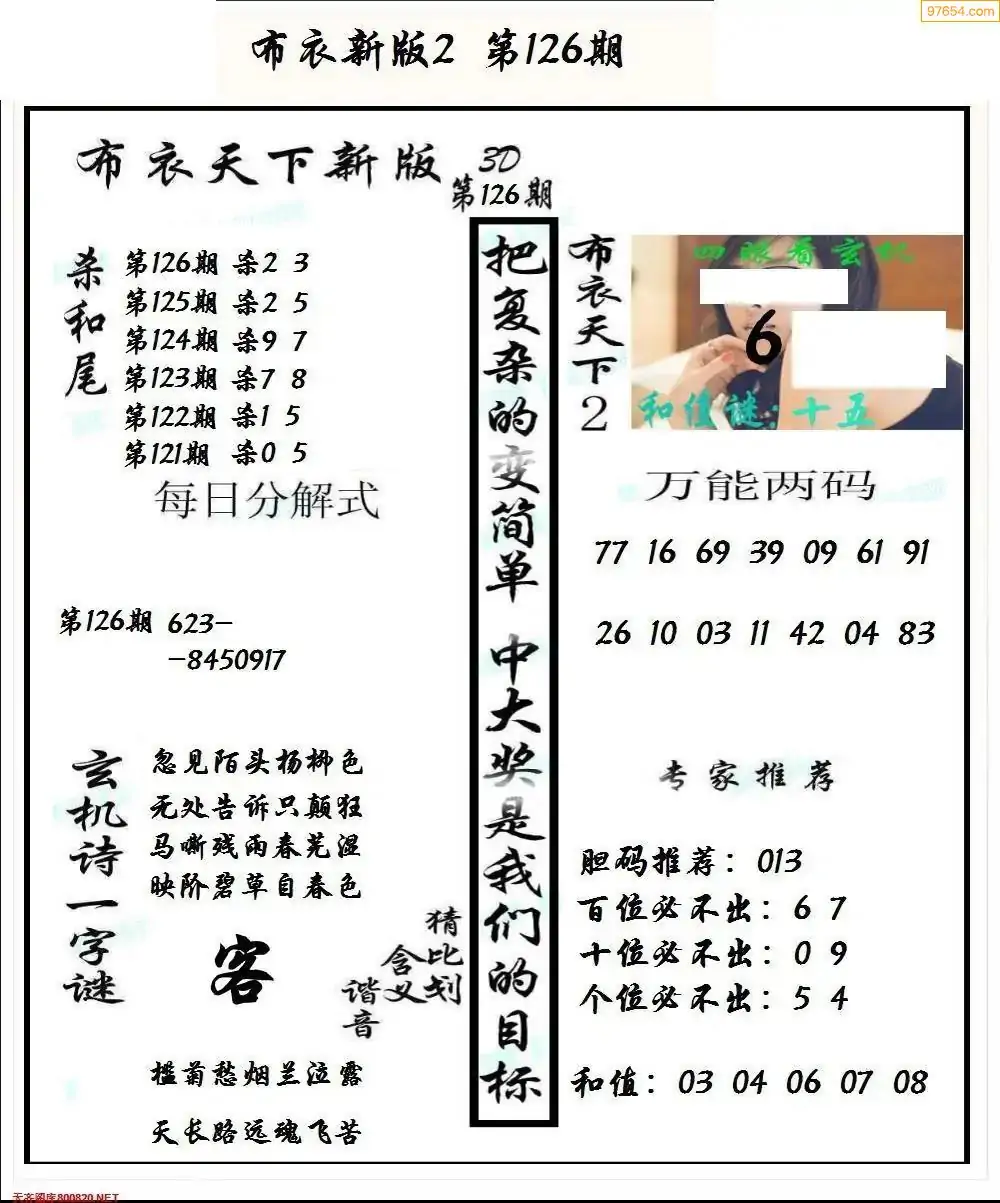 97654.com
布衣新版2 第126期
布衣天下新版 3D
第126期
杀和尾
第126期 杀2 3
第125期 杀2 5
第124期 杀9 7
第123期 杀7 8
第122期 杀1 5
第121期 杀0 5
每日分解式
第126期 623-
-8450917
玄机诗一字谜
忽见陌头杨柳色
无处告诉只颠狂
马嘶残雨春芜湿
映阶碧草自春色
客
猜比划
含义
谐音
槛菊愁烟兰泣露
天长路远魂飞苦
把复杂的变简单 中大奖是我们的目标
布衣天下2
四眼看玄机
6
和值谜:十五
万能两码
77 16 69 39 09 61 91
26 10 03 11 42 04 83
专家推荐
胆码推荐:013
百位必不出:6 7
十位必不出:0 9
个位必不出:5 4
和值:03 04 06 07 08
天齐图库800820.NET